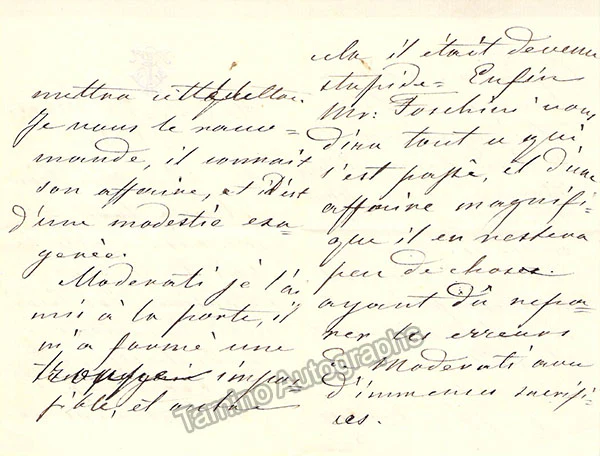 mettra cette lettre.
Je vous le recom=
mande, il connait
son affaire, et il est
d'une modestie exa=
gerée.
Moderati je l'ai
mis à la porte, il
m'a formé une
troupe impos=
sible, et outre
cela il était devenu
stupide= Enfin
Mr: Foschini vous
dira tout ce qui
s'est passé, et d'une
affaire magnifi=
que il en restera
peu de chose.
ayant dû repa=
rer les erreurs
de Moderati avec
d'immenses sacrifi=
ces.
Tamino Autographs